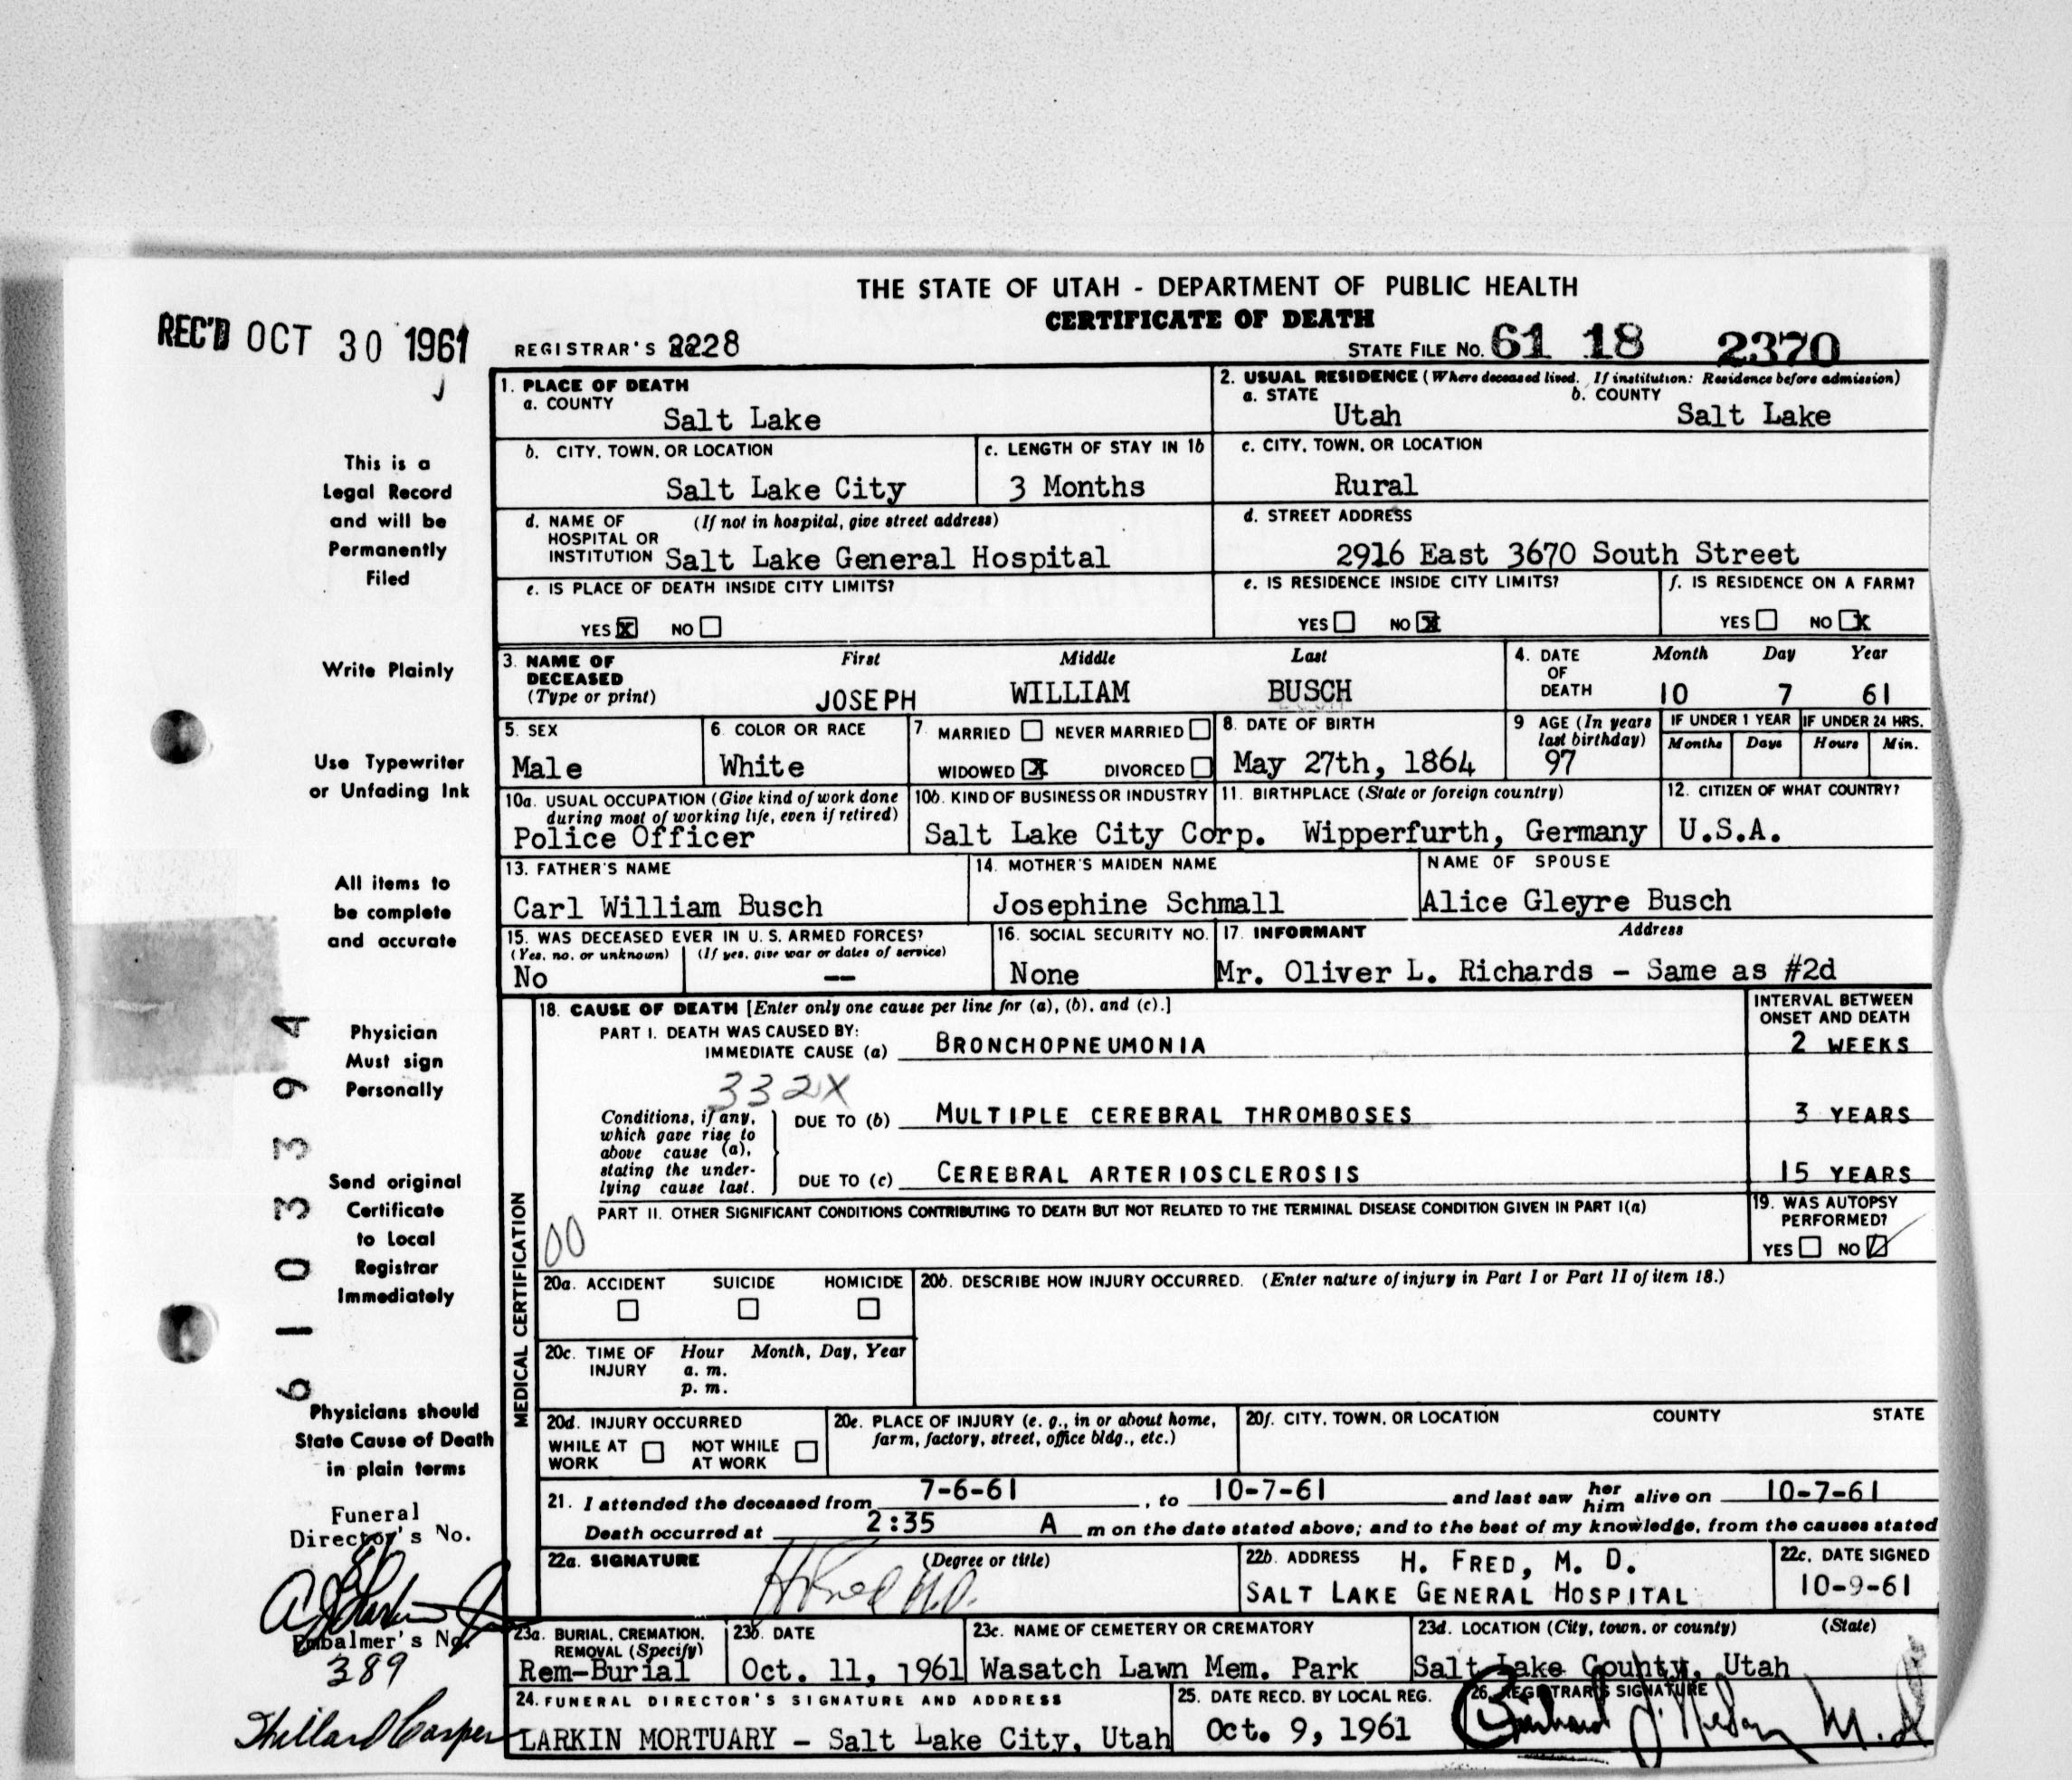 THE STATE OF UTAH - DEPARTMENT OF PUBLIC HEALTH
CERTIFICATE OF DEATH
REC'D OCT 30 1961
REGISTRAR'S 2228
STATE FILE NO. 61 18 2370
This is a
Legal Record
and will be
Permanently
Filed
Write Plainly
Use Typewriter
or Unfading Ink
All items to
be complete
and accurate
Physician
Must sign
Personally
Send original
Certificate
to Local
Registrar
Immediately
Physicians should
State Cause of Death
in plain terms
Funeral
Director's No.
Embalmer's No.
389
6103394
1. PLACE OF DEATH
a. COUNTY
Salt Lake
2. USUAL RESIDENCE (Where deceased lived. If institution: Residence before admission)
a. STATE b. COUNTY
Utah Salt Lake
b. CITY, TOWN, OR LOCATION
Salt Lake City
c. LENGTH OF STAY IN 1b
3 Months
c. CITY, TOWN, OR LOCATION
Rural
d. NAME OF (If not in hospital, give street address)
HOSPITAL OR
INSTITUTION Salt Lake General Hospital
d. STREET ADDRESS
2916 East 3670 South Street
e. IS PLACE OF DEATH INSIDE CITY LIMITS?
YES X NO
e. IS RESIDENCE INSIDE CITY LIMITS?
YES NO X
f. IS RESIDENCE ON A FARM?
YES NO X
3. NAME OF DECEASED
(Type or print)
First Middle Last
JOSEPH WILLIAM BUSCH
4. DATE OF DEATH
Month Day Year
10 7 61
5. SEX
Male
6. COLOR OR RACE
White
7. MARRIED NEVER MARRIED
WIDOWED X DIVORCED
8. DATE OF BIRTH
May 27th, 1864
9 AGE (In years
last birthday)
97
IF UNDER 1 YEAR
Months Days
IF UNDER 24 HRS.
Hours Min.
10a. USUAL OCCUPATION (Give kind of work done
during most of working life, even if retired)
Police Officer
10b. KIND OF BUSINESS OR INDUSTRY
Salt Lake City Corp.
11. BIRTHPLACE (State or foreign country)
Wipperfurth, Germany
12. CITIZEN OF WHAT COUNTRY?
U.S.A.
13. FATHER'S NAME
Carl William Busch
14. MOTHER'S MAIDEN NAME
Josephine Schmall
NAME OF SPOUSE
Alice Gleyre Busch
15. WAS DECEASED EVER IN U. S. ARMED FORCES?
(Yes, no, or unknown) (If yes, give war or dates of service)
No --
16. SOCIAL SECURITY NO.
None
17. INFORMANT Address
Mr. Oliver L. Richards - Same as #2d
MEDICAL CERTIFICATION
18. CAUSE OF DEATH [Enter only one cause per line for (a), (b), and (c).]
INTERVAL BETWEEN
ONSET AND DEATH
PART I. DEATH WAS CAUSED BY:
IMMEDIATE CAUSE (a) BRONCHOPNEUMONIA 2 WEEKS
332X
Conditions, if any,
which gave rise to
above cause (a),
stating the under-
lying cause last.
DUE TO (b) MULTIPLE CEREBRAL THROMBOSES 3 YEARS
DUE TO (c) CEREBRAL ARTERIOSCLEROSIS 15 YEARS
PART II. OTHER SIGNIFICANT CONDITIONS CONTRIBUTING TO DEATH BUT NOT RELATED TO THE TERMINAL DISEASE CONDITION GIVEN IN PART I(a)
00
19. WAS AUTOPSY
PERFORMED?
YES NO
20a. ACCIDENT SUICIDE HOMICIDE
20b. DESCRIBE HOW INJURY OCCURRED. (Enter nature of injury in Part I or Part II of item 18.)
20c. TIME OF INJURY
Hour Month, Day, Year
a. m.
p. m.
20d. INJURY OCCURRED
WHILE AT WORK NOT WHILE AT WORK
20e. PLACE OF INJURY (e. g., in or about home,
farm, factory, street, office bldg., etc.)
20f. CITY, TOWN, OR LOCATION COUNTY STATE
21. I attended the deceased from 7-6-61, to 10-7-61 and last saw her him alive on 10-7-61
Death occurred at 2:35 A m on the date stated above; and to the best of my knowledge, from the causes stated
22a. SIGNATURE (Degree or title)
H Fred M.D.
22b. ADDRESS H. FRED, M. D.
SALT LAKE GENERAL HOSPITAL
22c. DATE SIGNED
10-9-61
23a. BURIAL, CREMATION,
REMOVAL (Specify)
Rem-Burial
23b. DATE
Oct. 11, 1961
23c. NAME OF CEMETERY OR CREMATORY
Wasatch Lawn Mem. Park
23d. LOCATION (City, town, or county) (State)
Salt Lake County, Utah
24. FUNERAL DIRECTOR'S SIGNATURE AND ADDRESS
LARKIN MORTUARY - Salt Lake City, Utah
25. DATE RECD. BY LOCAL REG.
Oct. 9, 1961
26. REGISTRAR'S SIGNATURE